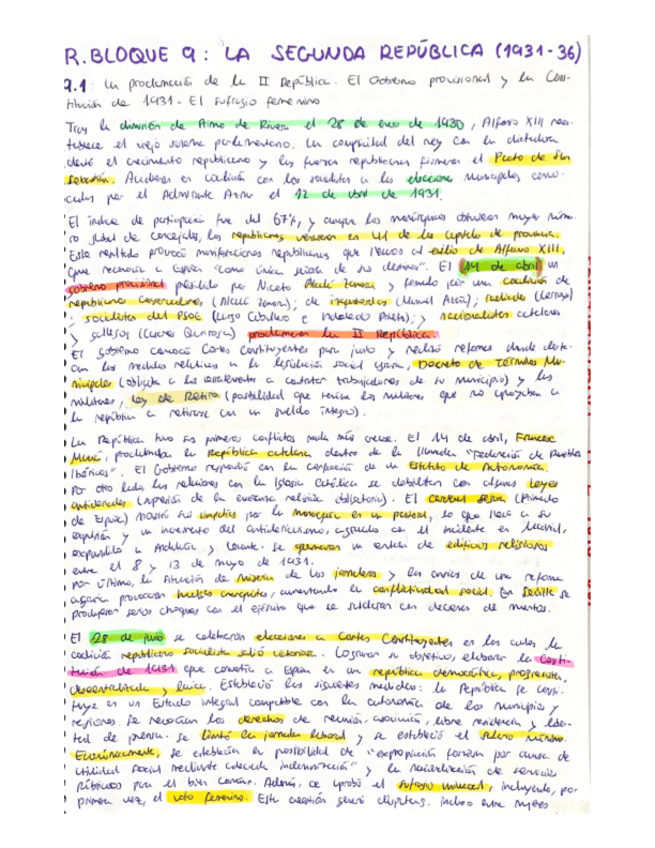 R. BLOQUE 9: LA SEGUNDA REPÚBLICA (1931-36)
9.1: La proclamación de la II República. El Gobierno provisional y la Cons-
titución de 1931. El sufragio femenino
Tras la dimisión de Primo de Rivera el 28 de enero de 1930, Alfonso XIII res-
tablece el viejo sistema parlamentario. La complicidad del rey con la dictadura
el crecimiento republicano y las fuerzas republicanas firmaron el Pacto de San
Sebastián. Acudieron en coalición con los socialistas a las elecciones municipales convo-
cadas por el Almirante Aznar el 12 de abril de 1931.
El índice de participación fue del 67%, y aunque los monárquicos obtuvieron mayor núme-
ro total de concejales, los republicanos vencieron en 41 de las capitales de provincia.
Este resultado provocó manifestaciones republicanas que llevaron al exilio de Alfonso XIII,
que reconocía a España "como única señora de sus destinos". El 14 de abril un
gobierno provisional presidido por Niceto Alcalá Zamora y formado por una coalición de
republicanos conservadores (Alcalá Zamora); de izquierdas (Manuel Azaña); radicales (Lerroux)
socialistas del PSOE (Largo Caballero e Indalecio Prieto); y nacionalistas catalanes
y gallegos (Casares Quiroga) proclamaron la II República.
El gobierno convocó Cortes Constituyentes para junio y realizó reformas desde
con las medidas relativas a la legislación social agraria, Decreto de Términos Mu-
nicipales (obligaba a los a contratar trabajadores de su municipio) y las
militares, Ley de Retiro (posibilidad que tenían los militares que no apoyaban a
la república a retirarse con un sueldo íntegro).
La República tuvo sus primeros conflictos nada más crearse. El 14 de abril, Francesc
Macià, proclamaba la República catalana dentro de la llamada "Federación de Pueblos
Ibéricos". El Gobierno respondió con la de un Estatuto de Autonomía.
Por otro lado las relaciones con la Iglesia Católica se debilitan con algunas leyes
anticlericales (supresión de la enseñanza religiosa obligatoria). El cardenal Segura (Primado
de España) mostró sus simpatías por la monarquía en un pastoral, lo que llevó a su
expulsión y un incremento del anticlericalismo, agravado con el incidente en Madrid,
expandido a Andalucía y Levante. Se quemaron un centenar de edificios religiosos
entre el 8 y 13 de mayo de 1931.
Por último, la situación de miseria de los jornaleros y las ansias de una reforma
agraria provocaron huelgas anarquistas, aumentando la conflictividad social. En Sevilla se
produjeron serios choques con el ejército que se saldaron con decenas de muertos.
El 28 de junio se celebraron elecciones a Cortes Constituyentes en las cuales la
coalición republicano socialista salió victoriosa. Lograron su objetivo, elaborar la Consti-
tución de 1931 que convertía a España en una república democrática, progresista,
descentralizada y laica. Estableció las siguientes medidas: la República se consti-
tuye en un Estado integral compatible con la autonomía de los municipios y
regiones. Se reconocían los derechos de reunión, asociación, libre residencia y liber-
tad de prensa. Se limitó la jornada laboral y se estableció el salario mínimo.
Económicamente, se establecía la posibilidad de "expropiación forzosa por causa de
utilidad social mediante adecuada indemnización" y la nacionalización de servicios
públicos para el bien común. Además, se aprobó el sufragio universal, incluyendo, por
primera vez, el voto femenino. Esta cuestión generó disputas, incluso entre mujeres